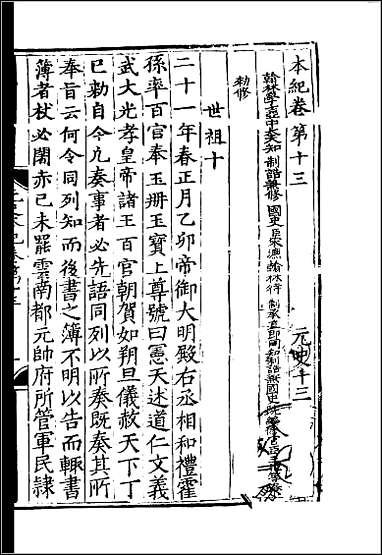 本紀卷第十三　元史十三
翰林學士亞中大夫知制誥兼修國史臣宋濂翰林待制承直郎同知制誥兼國史院編修官臣王禕奉
勑修
世祖十
二十一年春正月乙卯帝御大明殿右丞相和禮霍
孫率百官奉玉冊玉寶上尊號曰憲天述道仁文義
武大光孝皇帝諸王百官朝賀如朔旦儀赦天下丁
巳勑自今凡奏事者必先語同列以所奏既奏其所
奉旨云何令同列知而後書之簿不明以告而輒書
簿者杖必闍赤己未罷雲南都元帥府所管軍民隷